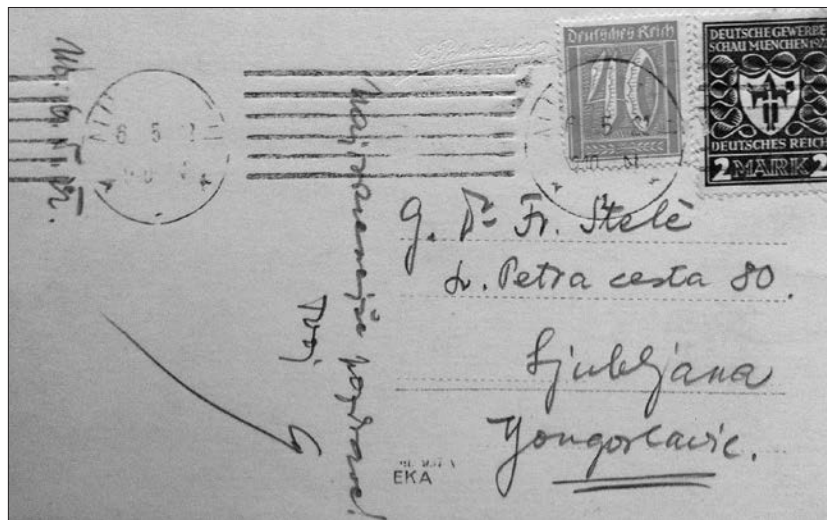 Deutsches Reich
40
DEUTSCHE GEWERBE
SCHAU MUENCHEN 192
DEUTSCHES REICH
2 MARK 2
Najiskrenejše pozdrave!
Tvoj
G. Dr Fr. Stelè
Sv. Petra cesta 80.
Ljubljana
Yougoslavie.
EKA